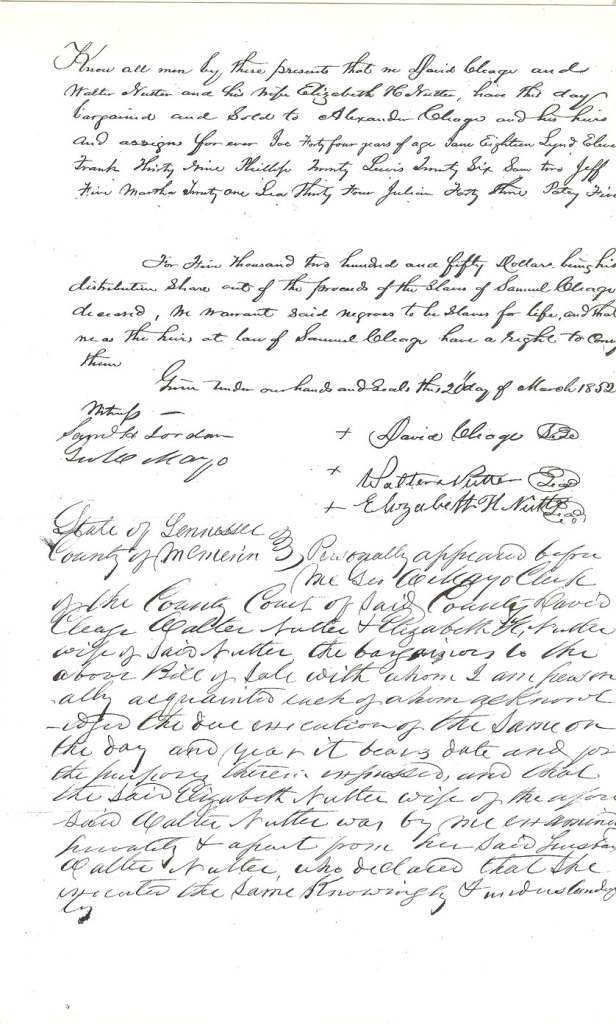 Know all men by these presents that we David Cleage and
Walter Nutter and his wife Elizabeth H Nutter, have this day
bargained and Sold to Alexander Cleage and his heirs
and assigns for ever Joe Forty four years of age Jane Eighteen Lynd
Frank Thirty Nine Phillip Twenty Lewis Twenty Six Sam two Jeff
Five Martha Twenty one Lea Thirty Four Julian Forty Patsy
For Five Thousand two hundred and fifty Dollars being his
distributive Share out of the proceeds of the Slaves of Samuel Cleage
deceased, We warrant said negroes to be Slaves for life, and that
we as the heirs at law of Samuel Cleage have a right to Convey
them
Given under our hands and Seals this 20th day of March 1852
Witness —
Saml H Jordan
Geo W Mayo
+ David Cleage Seal
+ Walter Nutter Seal
+ Elizabeth H. Nutter Seal
State of Tennessee
County of McMinn } Personally appeared before
me Geo W Mayo Clerk
of the County Court of Said County David
Cleage Walter Nutter & Elizabeth H. Nutter
wife of Said Nutter the bargainors to the
above Bill of Sale with whom I am person
ally acquainted each of whom acknowl
-edged the due execution of the Same on
the day and year it bears date and for
the purposes therein expressed, and that
the Said Elizabeth Nutter wife of the afore
said Walter Nutter was by me examined
privately & apart from her Said husband
Walter Nutter, who declared that She
executed the Same Knowingly & understanding
ly